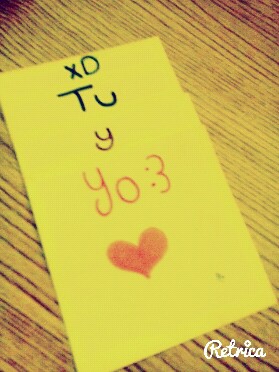 xD
Tu
y
yo :3
Retrica